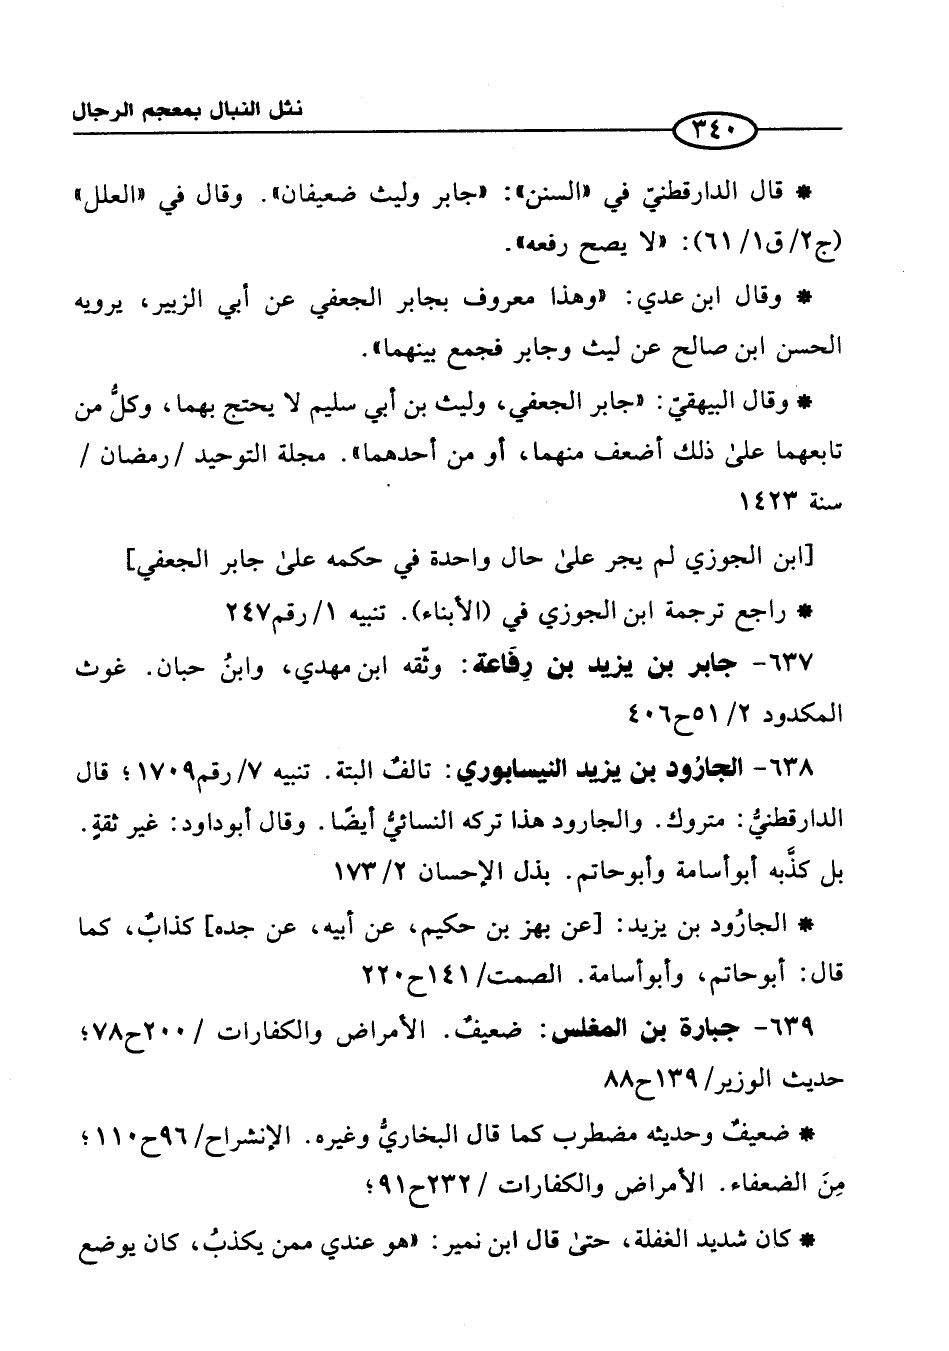 نثل النبال بمعجم الرجال
٣٤٠
* قال الدارقطنيّ في «السنن»: «جابر وليث ضعيفان». وقال في «العلل»
(ج٢/ ق١/ ٦١): «لا يصح رفعه».
* وقال ابن عدي: «وهذا معروف بجابر الجعفي عن أبي الزبير، يرويه
الحسن ابن صالح عن ليث وجابر فجمع بينهما».
* وقال البيهقيّ: «جابر الجعفي، وليث بن أبي سليم لا يحتج بهما، وكلُّ من
تابعهما علىٰ ذلك أضعف منهما، أو من أحدهما». مجلة التوحيد /رمضان /
سنة ١٤٢٣
[ابن الجوزي لم يجر علىٰ حال واحدة في حكمه علىٰ جابر الجعفي]
* راجع ترجمة ابن الجوزي في (الأبناء). تنبيه ١/ رقم٢٤٧
٦٣٧- جابر بن يزيد بن رِفَاعة: وثّقه ابن مهدي، وابنُ حبان. غوث
المكدود ٢/ ٥١ح٤٠٦
٦٣٨- الجارُود بن يزيد النيسابوري: تالفٌ البتة. تنبيه ٧/ رقم١٧٠٩؛ قال
الدارقطنيُّ: متروك. والجارود هذا تركه النسائيُّ أيضًا. وقال أبوداود: غير ثقةٍ.
بل كذَّبه أبوأسامة وأبوحاتم. بذل الإحسان ٢/ ١٧٣
* الجارُود بن يزيد: [عن بهز بن حكيم، عن أبيه، عن جده] كذابٌ، كما
قال: أبوحاتم، وأبوأسامة. الصمت/ ١٤١ح٢٢٠
٦٣٩- جبارة بن المغلس: ضعيفٌ. الأمراض والكفارات /٢٠٠ح٧٨؛
حديث الوزير/ ١٣٩ح٨٨
* ضعيفٌ وحديثه مضطرب كما قال البخاريُّ وغيره. الإنشراح/ ٩٦ح١١٠؛
مِنَ الضعفاء. الأمراض والكفارات /٢٣٢ح٩١؛
* كان شديد الغفلة، حتىٰ قال ابن نمير: «هو عندي ممن يكذبُ، كان يوضع